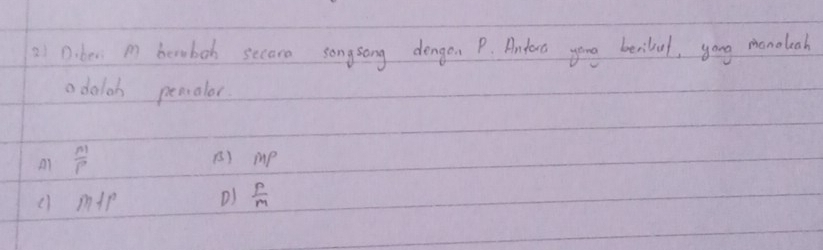 2) Diberi m berubah secara songsang dengan P. Antara yang berikut, yang manakah
adalah pemalar.
A) m/P B) MP
C) m+P D) P/m